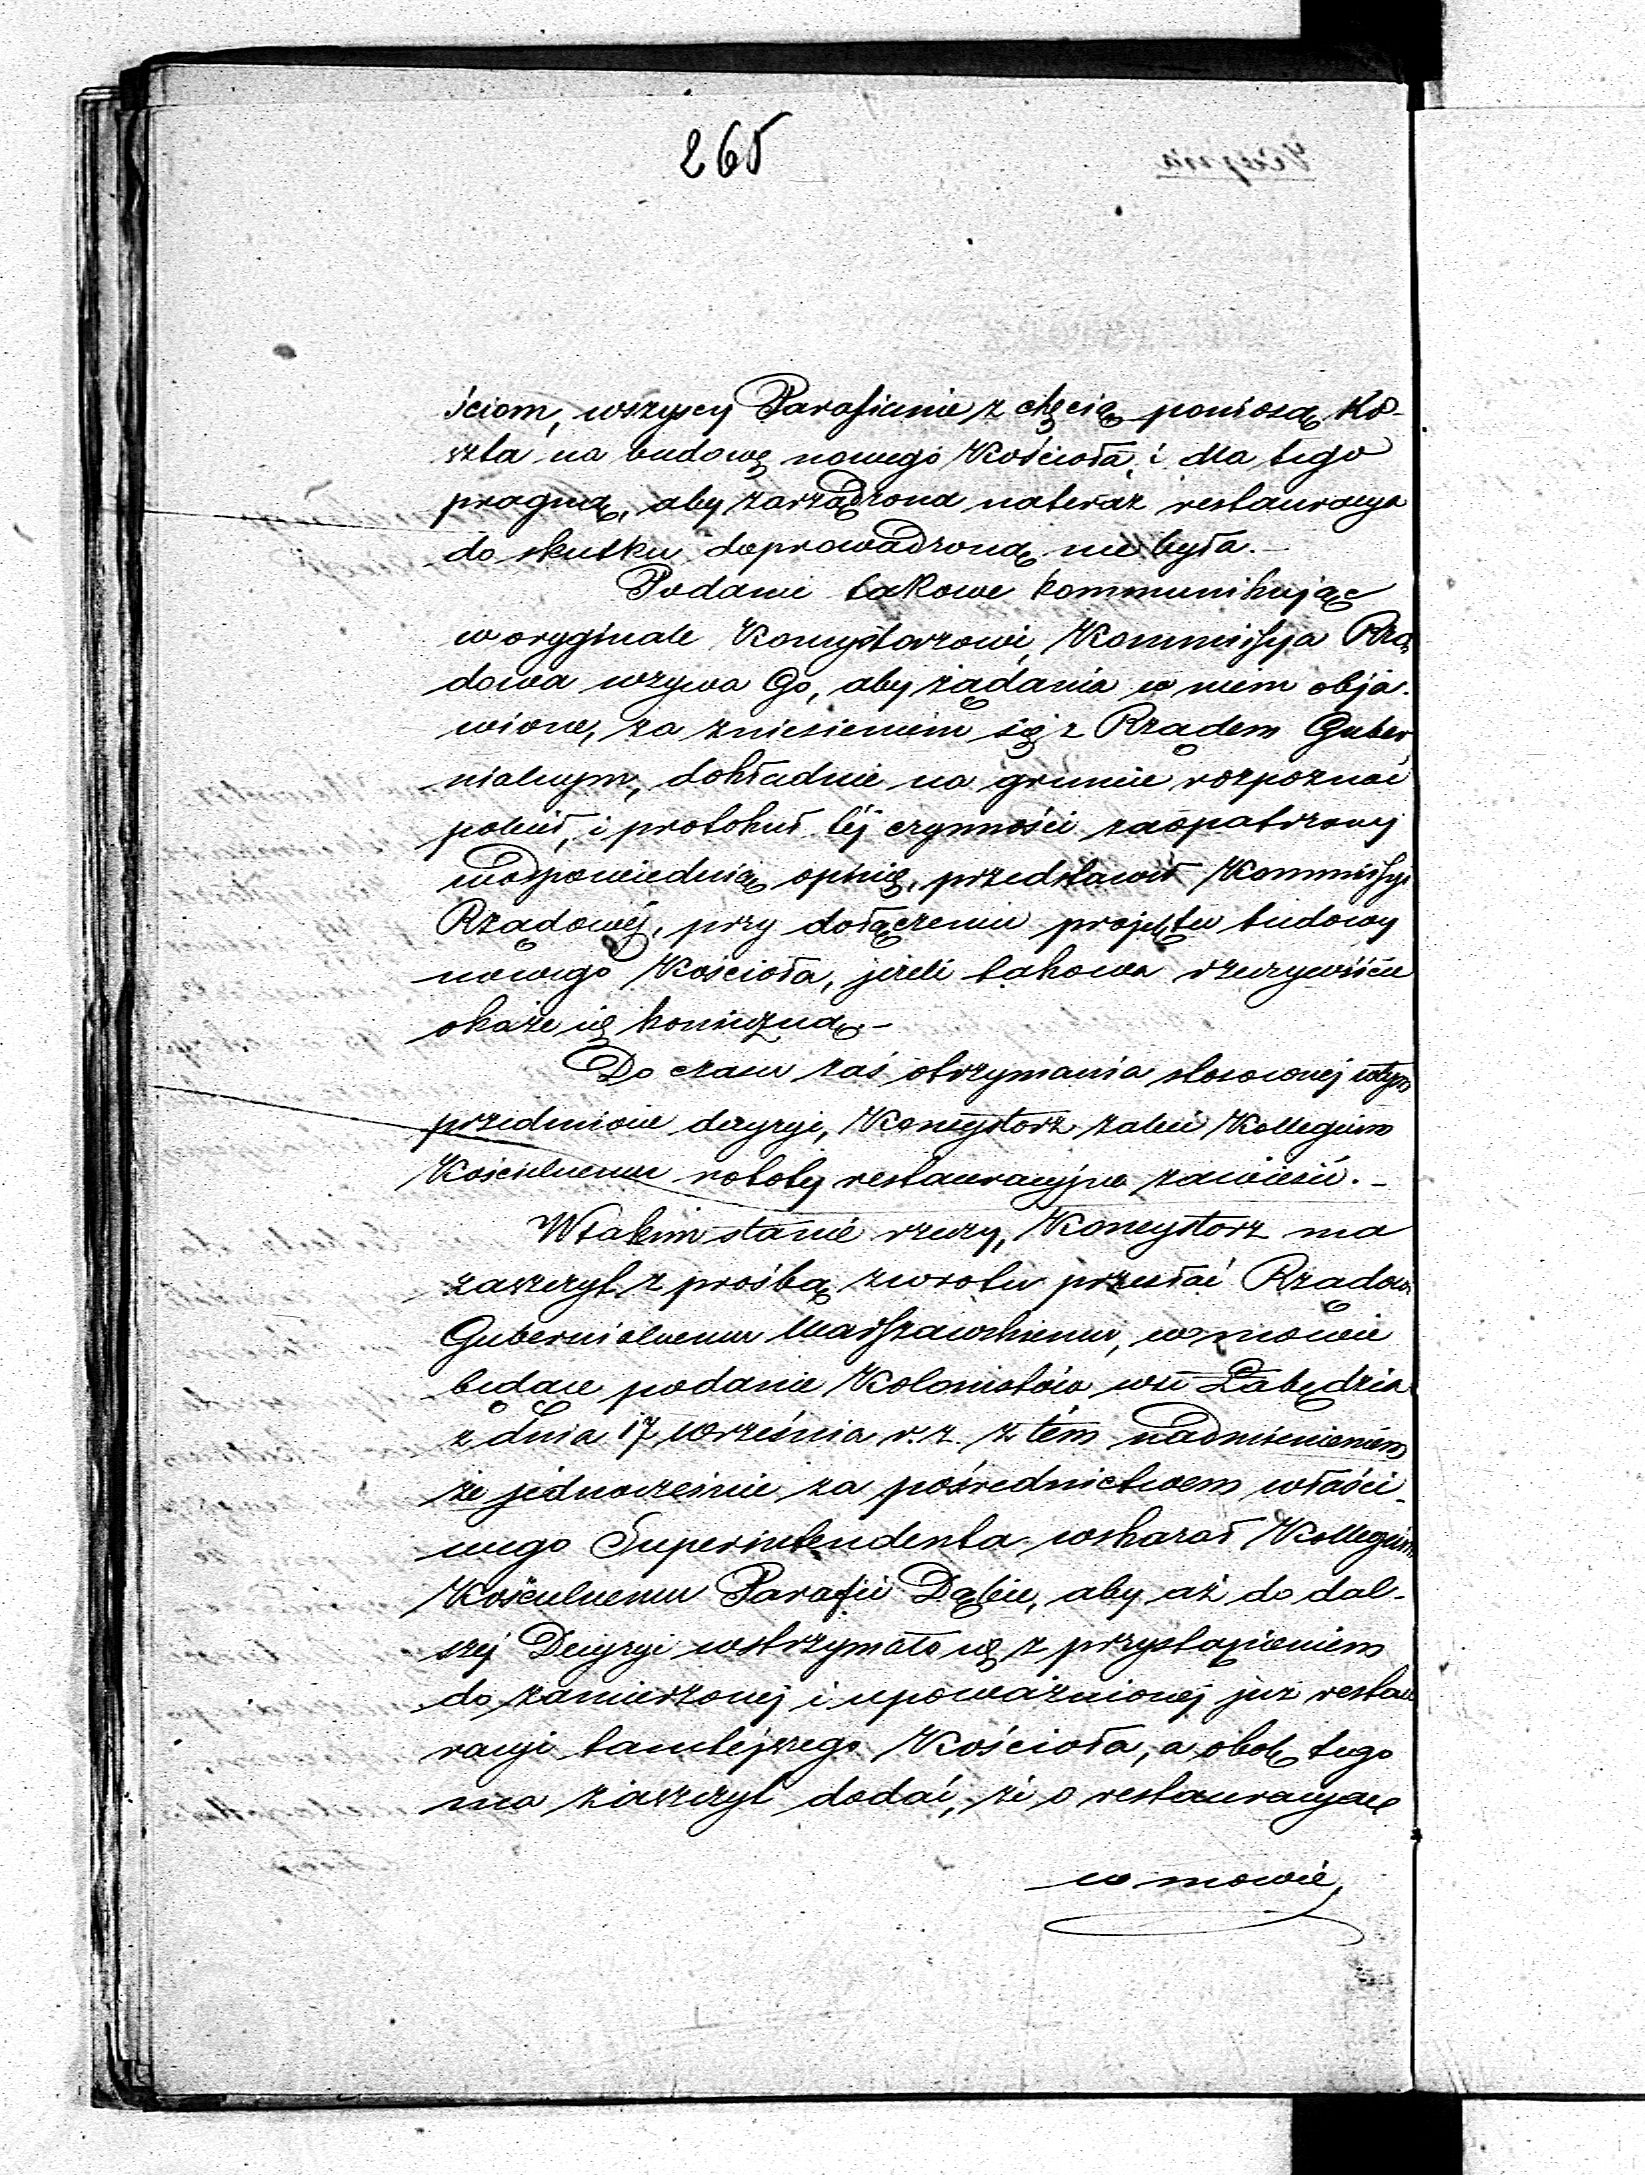 265
ściom, wszyscy Parafianie z chęcią poniosą Ko-
szta na budowę nowego Kościoła, i dla tego
pragną, aby zarządzona nateraz restauracya
do skutku doprowadzoną nie była. –
Podanie takowe kommunikując
w oryginale Konsystorzowi, Kommissya Rzą-
dowa wzywa Go, aby żądania w niem obja-
wione, za zniesieniem się z Rządem Guber
nialnym, dokładnie na gruncie rozpoznać
polecił, i protokuł téj czynności zaopatrzony
w odpowiednią opinię, przedstawił Kommissyi
Rządowéj, przy dołączeniu projektu budowy
nowego Kościoła, jeżeli takowa rzeczywiście
okaże się konieczną. –
Do czasu zaś otrzymania stosownej w tym
przedmiocie decyzyi, Konsystorz zaleci Kollegium
Kościelnemu roboty restauracyjne zawiesić. –
W takim stanie rzeczy, Konsystorz ma
zaszczyt z prośbą zwrotu przesłać Rządowi
Gubernialnemu Warszawskiemu, w mowie
będące podanie Kolonistów wsi Łabędzia
z dnia 17 Września r. z. z tém nadmienieniem
że jednocześnie za pośrednictwem właści-
wego Superintendenta wskazał Kollegium
Kościelnemu Parafii Dąbie, aby aż do dal-
szej Decyzyi wstrzymało się z przystąpieniem
do zamierzonej i upoważnionej już restau
racyi tamtéjszego Kościoła, a obok tego
ma zaszczyt dodać, że o restauracyą
w mowie